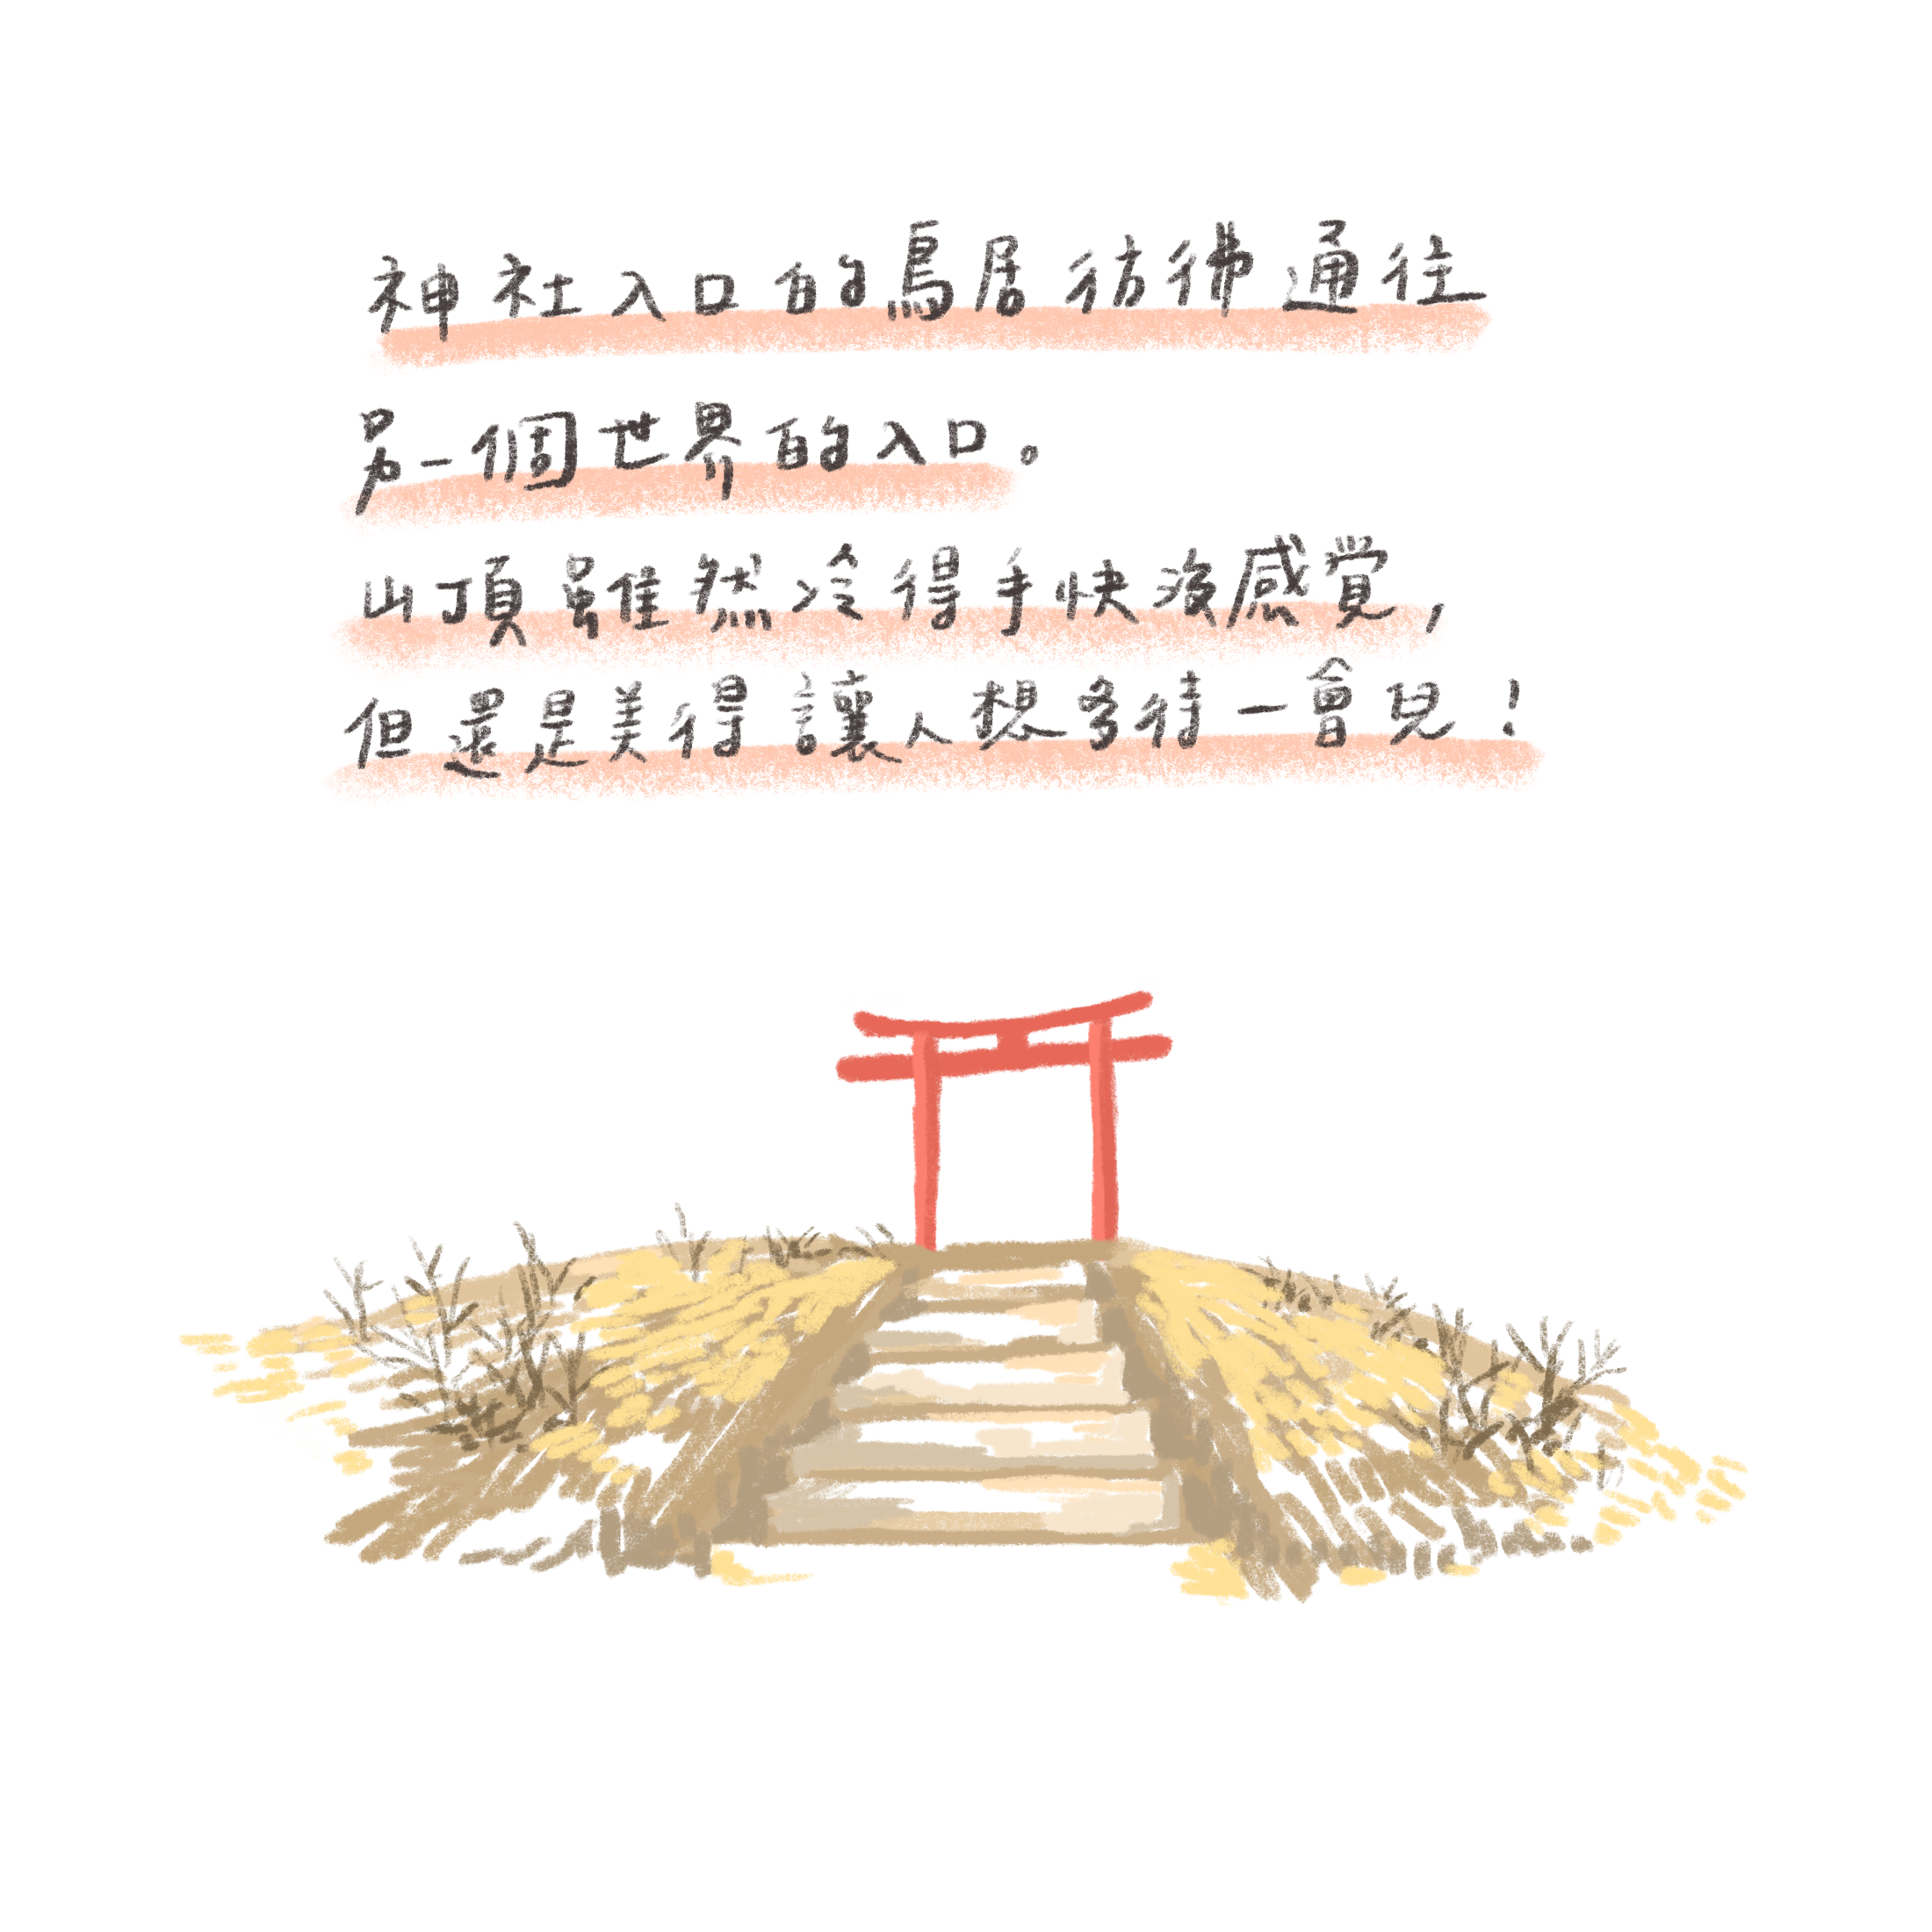 神社入口的鳥居彷彿通往
另一個世界的入口。
山頂雖然冷得手快沒感覺，
但還是美得讓人想多待一會兒！